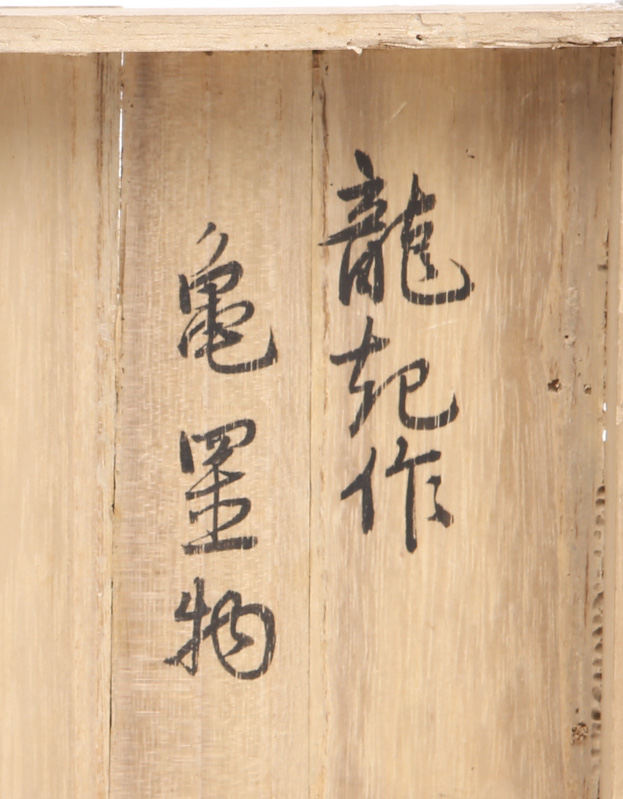 龍起作
亀置物